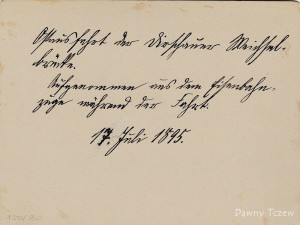 Ostausfahrt der Dirschauer Weichsel-
brücke.
Aufgenommen aus dem Eisenbahn-
zuge während der Fahrt.
17. Juli 1895.
Dawny Tczew